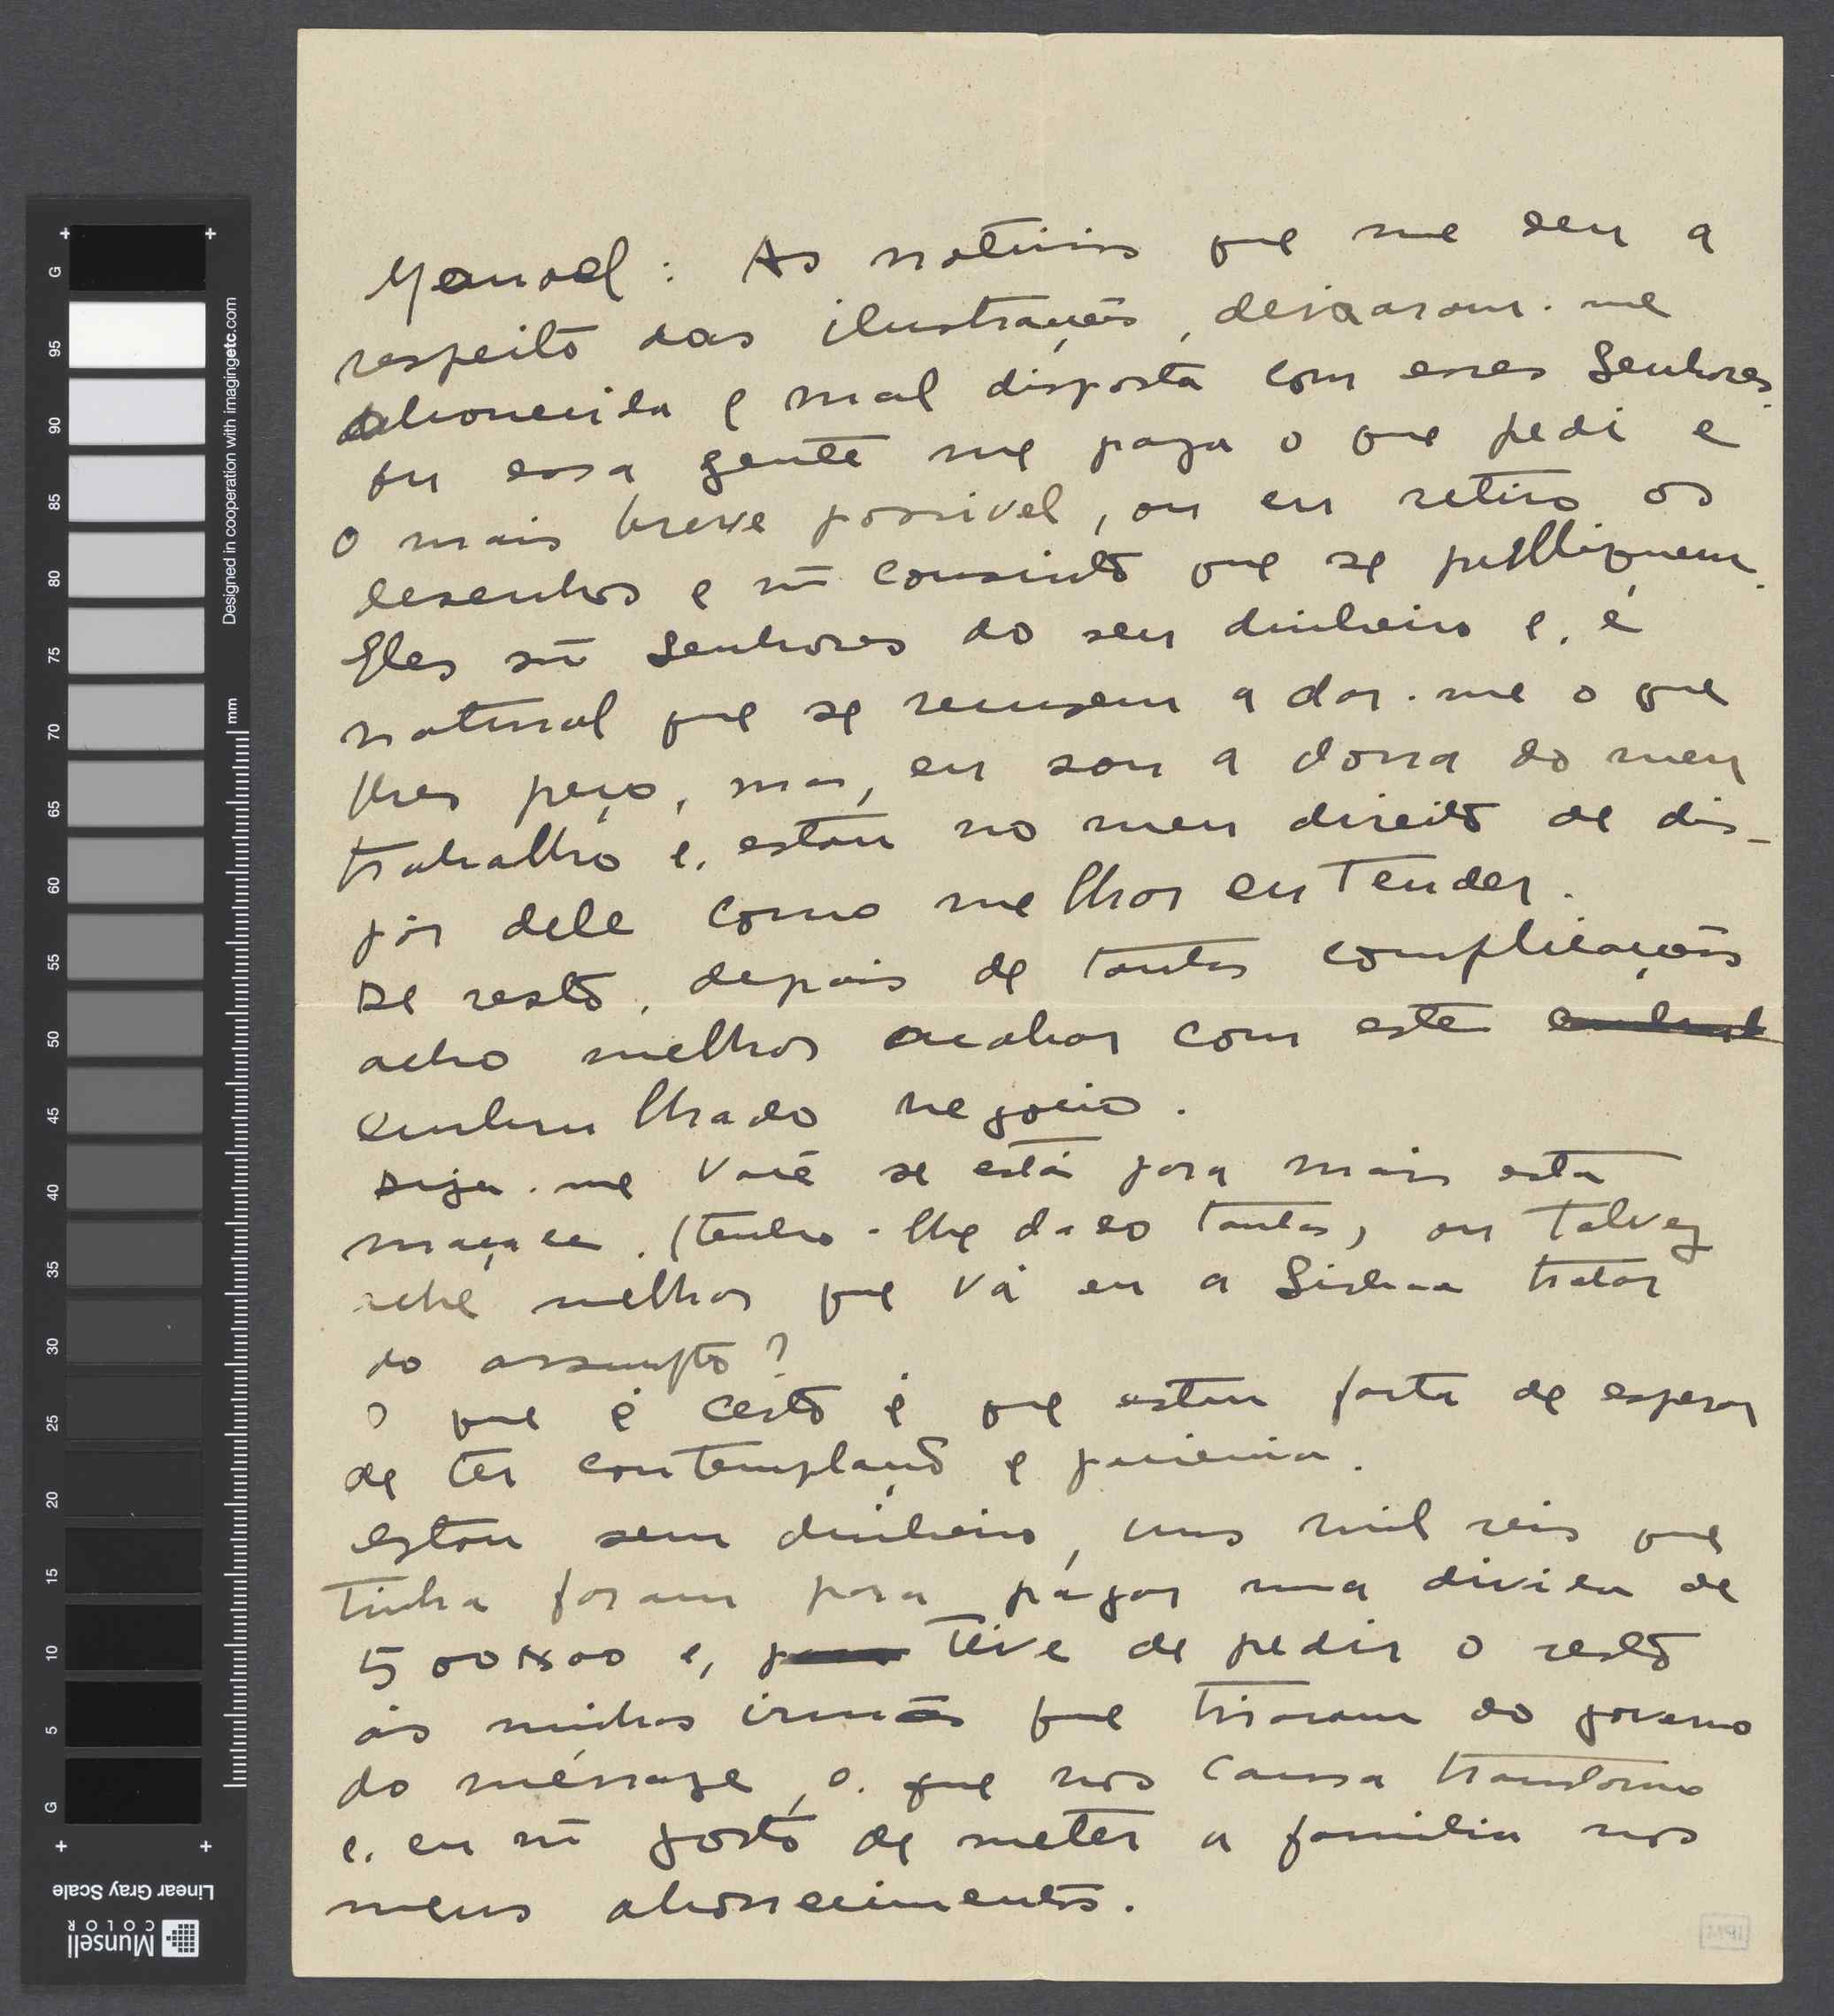 Manoel: As noticias que me deu a
respeito das ilustrações, deixaram-me
aborrecida e mal disposta com esses Senhores.
Ou essa gente me paga o que pedi e
o mais breve possivel, ou eu retiro os
desenhos e nã consinto que se publiquem.
Eles sã Senhores do seu dinheiro e, é
natural que se recusem a dar-me o que
lhes peço, mas, eu sou a dona do meu
trabalho e, estou no meu direito de dis-
pôr dele como melhor entender.
De resto, depois de tantas complicações
acho melhor acabar com este
embrulhado negocio.
Diga-me Você se está para mais esta
maçada, (tenho-lhe dado tantas) ou talvez
ache melhor que vá eu a Lisboa tratar
do assumpto?
O que é certo é que estou farta de esperar
de ter contemplação e paciencia.
Estou sem dinheiro, uns mil reis que
tinha foram para pagar uma divida de
500$00 e, tive de pedir o resto
ás minhas irmãs que tiraram do governo
do ménage, o que nos causa transtorno
e, eu nã gosto de meter a familia nos
meus aborrecimentos.
G 95 90 85 80 75 70 65 60 55 50 45 40 35 30 25 20 15 10 5 G
mm
Designed in cooperation with imagingetc.com
Linear Gray Scale
Munsell
COLOR